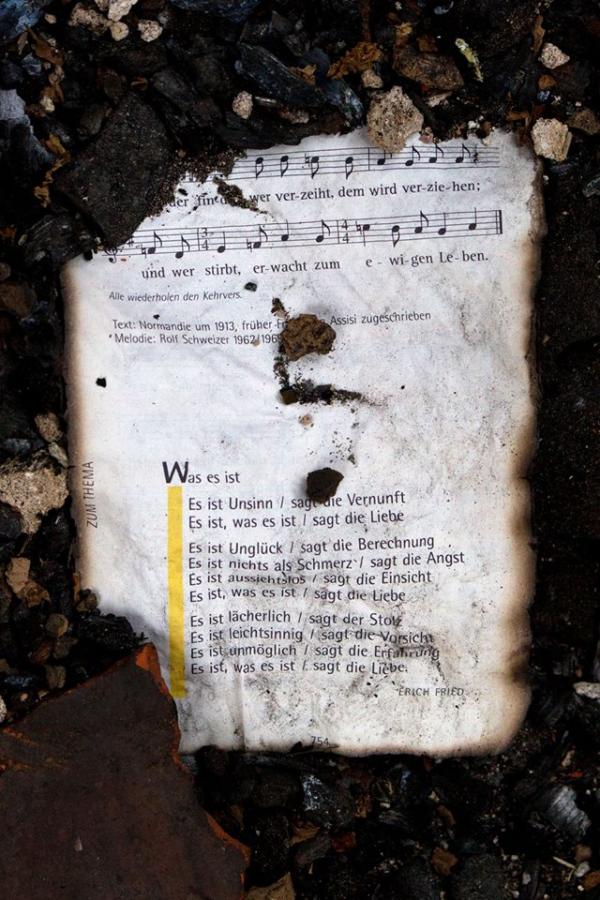 der find wer ver-zeiht, dem wird ver-zie-hen;
3 4 4 4
und wer stirbt, er-wacht zum e - wi-gen Le-ben.
Alle wiederholen den Kehrvers.
Text: Normandie um 1913, früher Assisi zugeschrieben
* Melodie: Rolf Schweizer 1962/196
ZUM THEMA
Was es ist
Es ist Unsinn / sagt die Vernunft
Es ist, was es ist / sagt die Liebe
Es ist Unglück / sagt die Berechnung
Es ist nichts als Schmerz / sagt die Angst
Es ist aussichtslos / sagt die Einsicht
Es ist, was es ist / sagt die Liebe
Es ist lächerlich / sagt der Stolz
Es ist leichtsinnig / sagt die Vorsicht
Es ist unmöglich / sagt die Erfahrung
Es ist, was es ist / sagt die Liebe.
ERICH FRIED
754